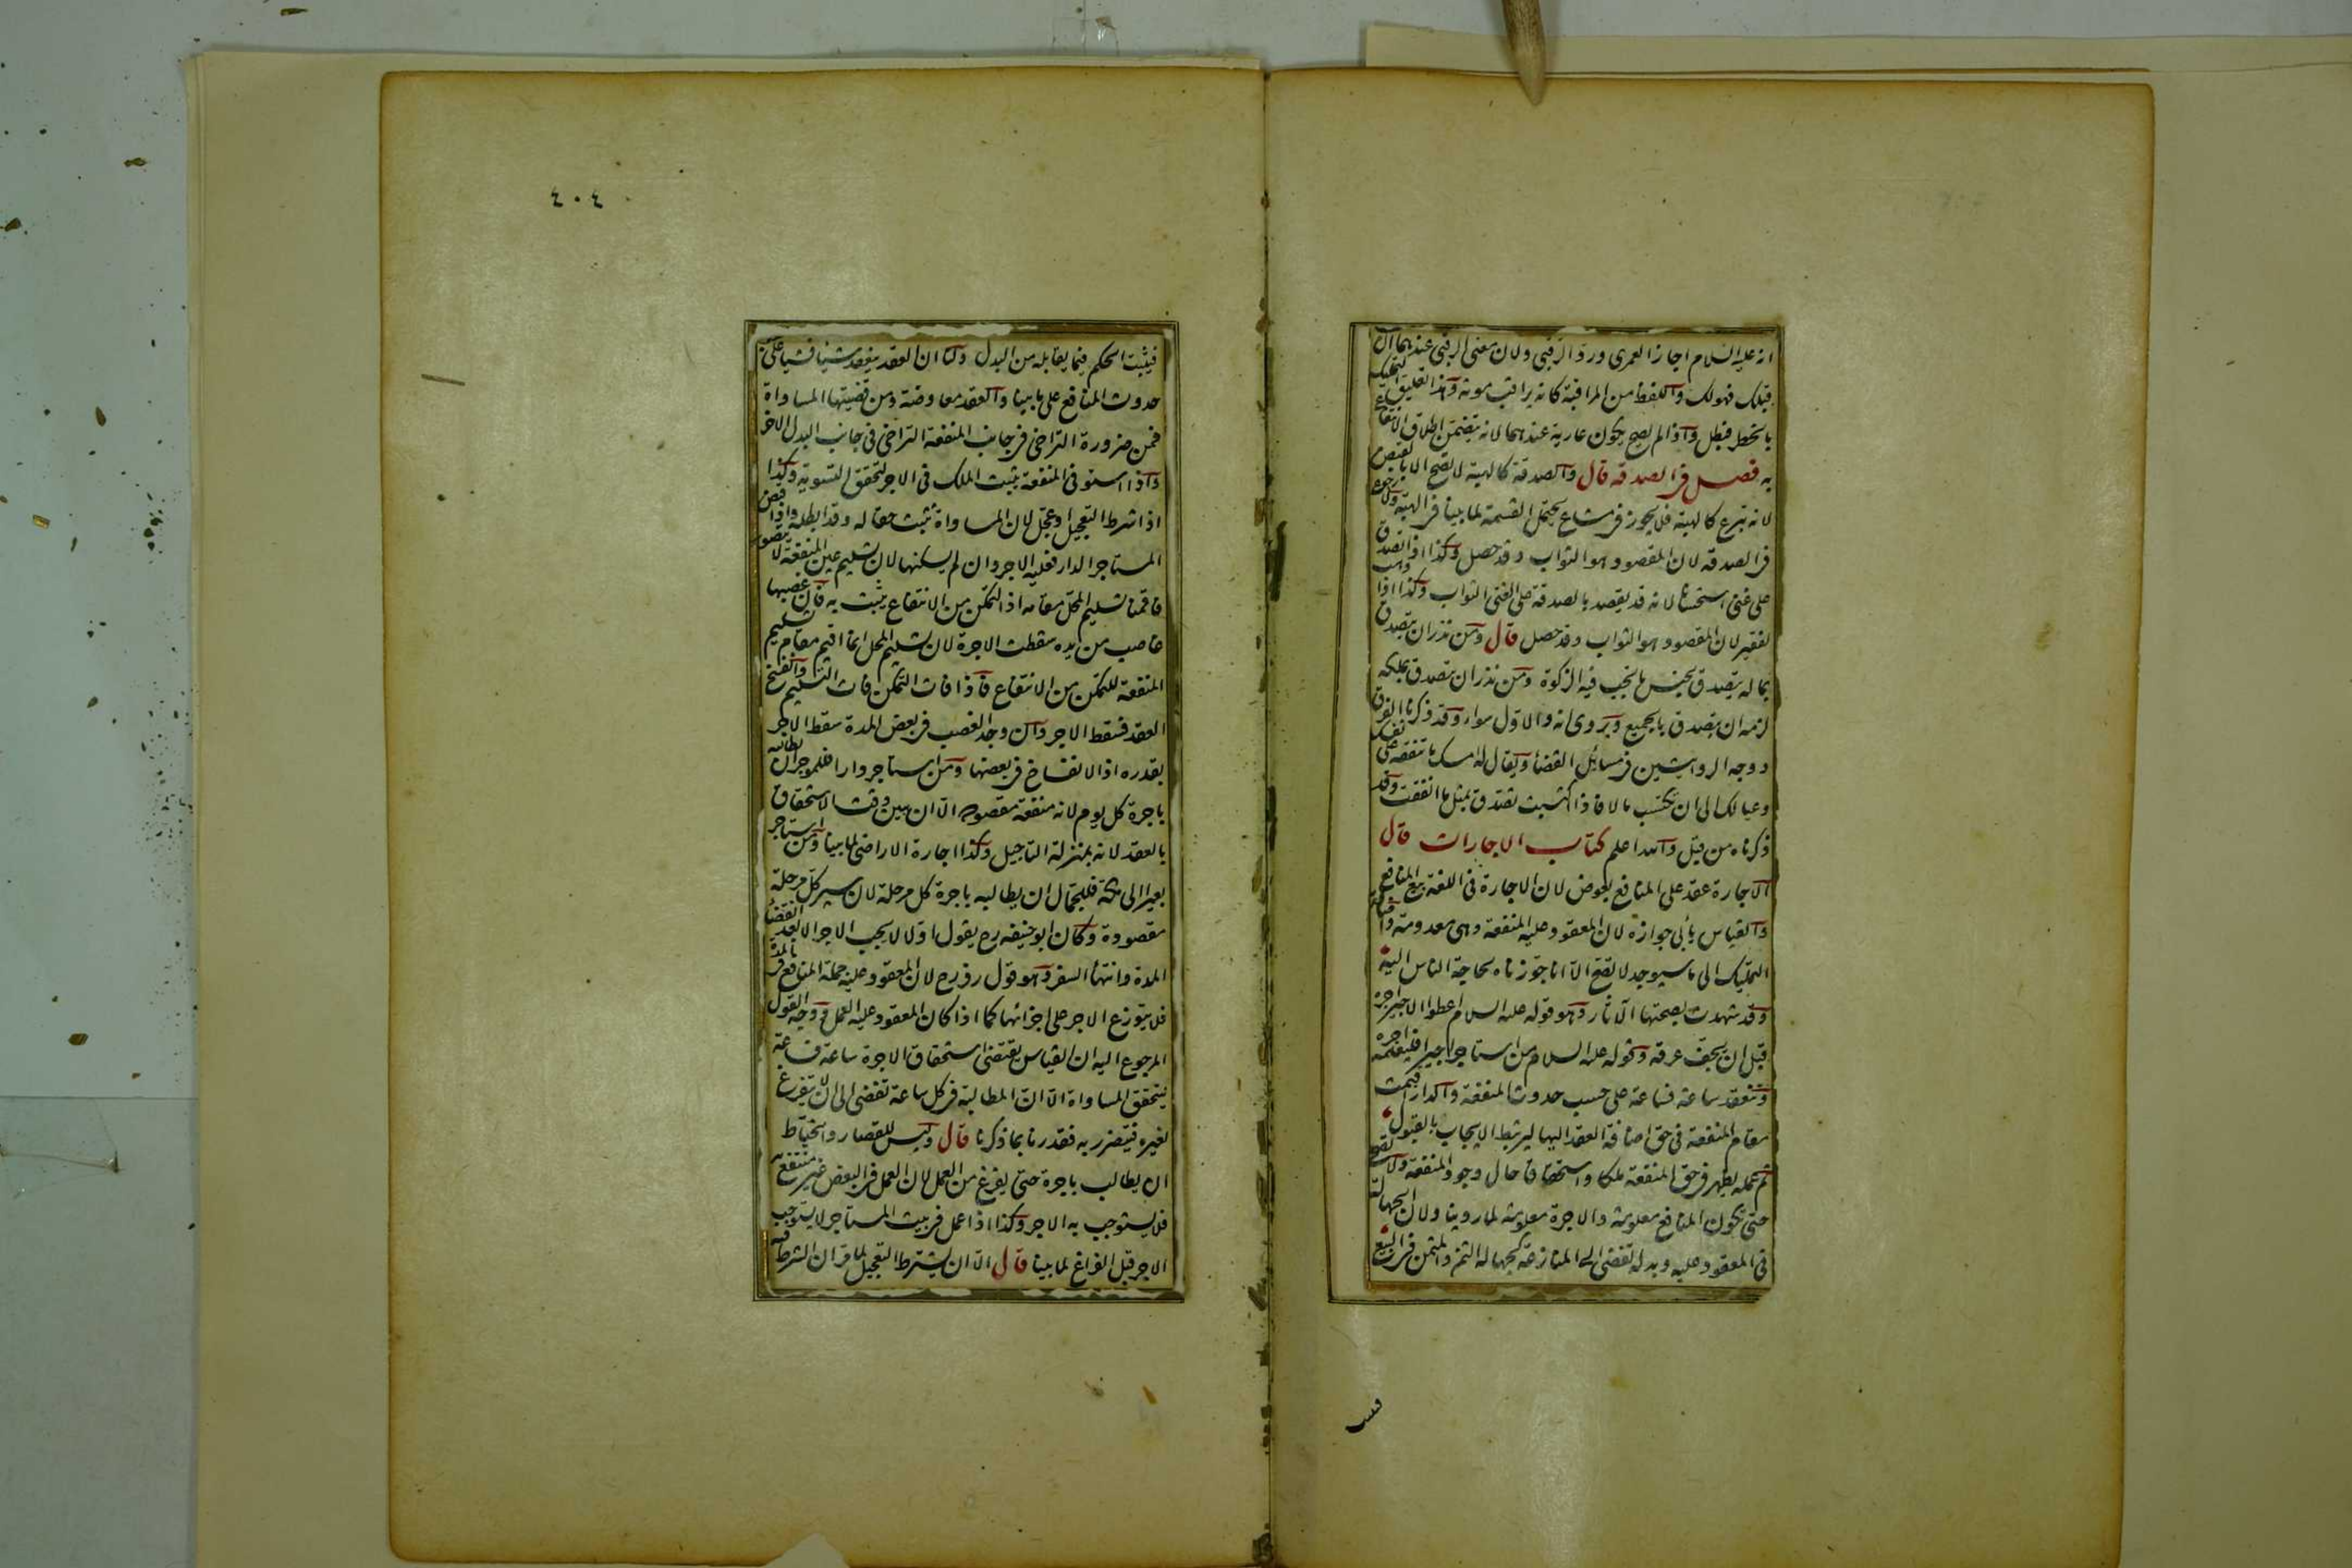 انه عليه السلام اجاز العمرى ورد الرقبى ولان معنى الرقبى عندهما ان
قبلك فهو لك واللفظ من المراقبة كانه يراقب موته وهذا تعليق التمليك
بالخطر فبطل واذا لم يصح يكون عارية عندهما لانه يتضمن اطلاق الانتفاع
به فصل فى الصدقة قال والصدقة كالهبة لا تصح الا بالقبض
لانه تبرع كالهبة فلا يجوز فى مشاع يحتمل القسمة لما بينا فى الهبة ولا رجوع
فى الصدقة لان المقصود هو الثواب وقد حصل وكذا اذا تصدق
على غنى استحسانا لانه قد يقصد بالصدقة على الغنى الثواب وكذا اذا وهب
لفقير لان المقصود هو الثواب وقد حصل قال ومن نذر ان يتصدق
بماله يتصدق بجنس ما تجب فيه الزكوة ومن نذر ان يتصدق بملكه
لزمه ان يتصدق بالجميع ويروى انه والاول سواء وقد ذكرنا الفرق
ووجه الروايتين فى مسائل القضا ويقال له امسك ما تنفقه على نفسك
وعيالك الى ان تكتسب مالا فاذا اكتسبت تصدق بمثل ما انفقت وقد
ذكرناه من قبل والله اعلم كتاب الاجارات قال
الاجارة عقد على المنافع بعوض لان الاجارة فى اللغة بيع المنافع
والقياس يأبى جوازه لان المعقود عليه المنفعة وهى معدومة واضافة
التمليك الى ما سيوجد لا تصح الا انا جوزناه لحاجة الناس اليه
وقد شهدت بصحتها الآثار وهو قوله عليه السلام اعطوا الاجير اجره
قبل ان يجف عرقه وقوله عليه السلام من استاجر اجيرا فليعلمه اجره
وتنعقد ساعة فساعة على حسب حدوث المنفعة والدار اقيمت
مقام المنفعة فى حق اضافة العقد اليها ليرتبط الايجاب بالقبول
ثم عمله يظهر فى حق المنفعة ملكا واستحقاقا حال وجود المنفعة ولا تصح
حتى يكون المنافع معلومة والاجرة معلومة لما روينا ولان الجهالة
فى المعقود عليه وبدله تفضى الى المنازعة كجهالة الثمن والمثمن فى البيع
فيثبت
٤٠٤
فيثبت الحكم فيما يقابله من البدل ولنا ان العقد ينعقد شيئا فشيئا على
حدوث المنافع على ما بينا والعقد معاوضة ومن قضيتها المساواة
فمن ضرورة التراخى فى جانب المنفعة التراخى فى جانب البدل الاخر
واذا استوفى المنفعة يثبت الملك فى الاجر لتحقق التسوية وكذا
اذا شرط التعجيل او عجل لان المساواة تثبت حقا له وقد ابطله واذا قبض
المستاجر الدار فعليه الاجر وان لم يسكنها لان تسليم عين المنفعة لا يتصور
فاقمنا تسليم المحل مقامه اذ التمكن من الانتفاع يثبت به فان غصبها
غاصب من يده سقطت الاجرة لان تسليم المحل انما اقيم مقام تسليم
المنفعة للتمكن من الانتفاع فاذا فات التمكن فات التسليم وانفسخ
العقد فسقط الاجر وان وجد الغصب فى بعض المدة سقط الاجر
بقدره اذ الانفساخ فى بعضها ومن استاجر دارا فللموجر ان يطالبه
باجرة كل يوم لانه منفعة مقصودة الا ان يبين وقت الاستحقاق
بالعقد لانه بمنزلة التاجيل وكذا اجارة الاراضى لما بينا ومن استاجر
بعيرا الى مكة فللجمال ان يطالبه باجرة كل مرحلة لان سير كل مرحلة
مقصودة وكان ابو حنيفه رح يقول اولا لا يجب الاجر الا بعد انقضاء
المدة وانتهاء السفر وهو قول زفر رح لان المعقود عليه جملة المنافع فى المدة
فلا يتوزع الاجر على اجزائها كما اذا كان المعقود عليه العمل ووجه القول
المرجوع اليه ان القياس يقتضى استحقاق الاجرة ساعة فساعة
ليتحقق المساواة الا ان المطالبة فى كل ساعة تفضى الى ان لا يتفرغ
لغيره فيتضرر به فقدرنا بما ذكرنا قال وليس للقصار والخياط
ان يطالب باجرة حتى يفرغ من العمل لان العمل فى البعض غير منتفع به
فلا يستوجب به الاجر وكذا اذا عمل فى بيت المستاجر لا يستوجب
الاجر قبل الفراغ لما بينا قال الا ان يشترط التعجيل لما مر ان الشرط فيه